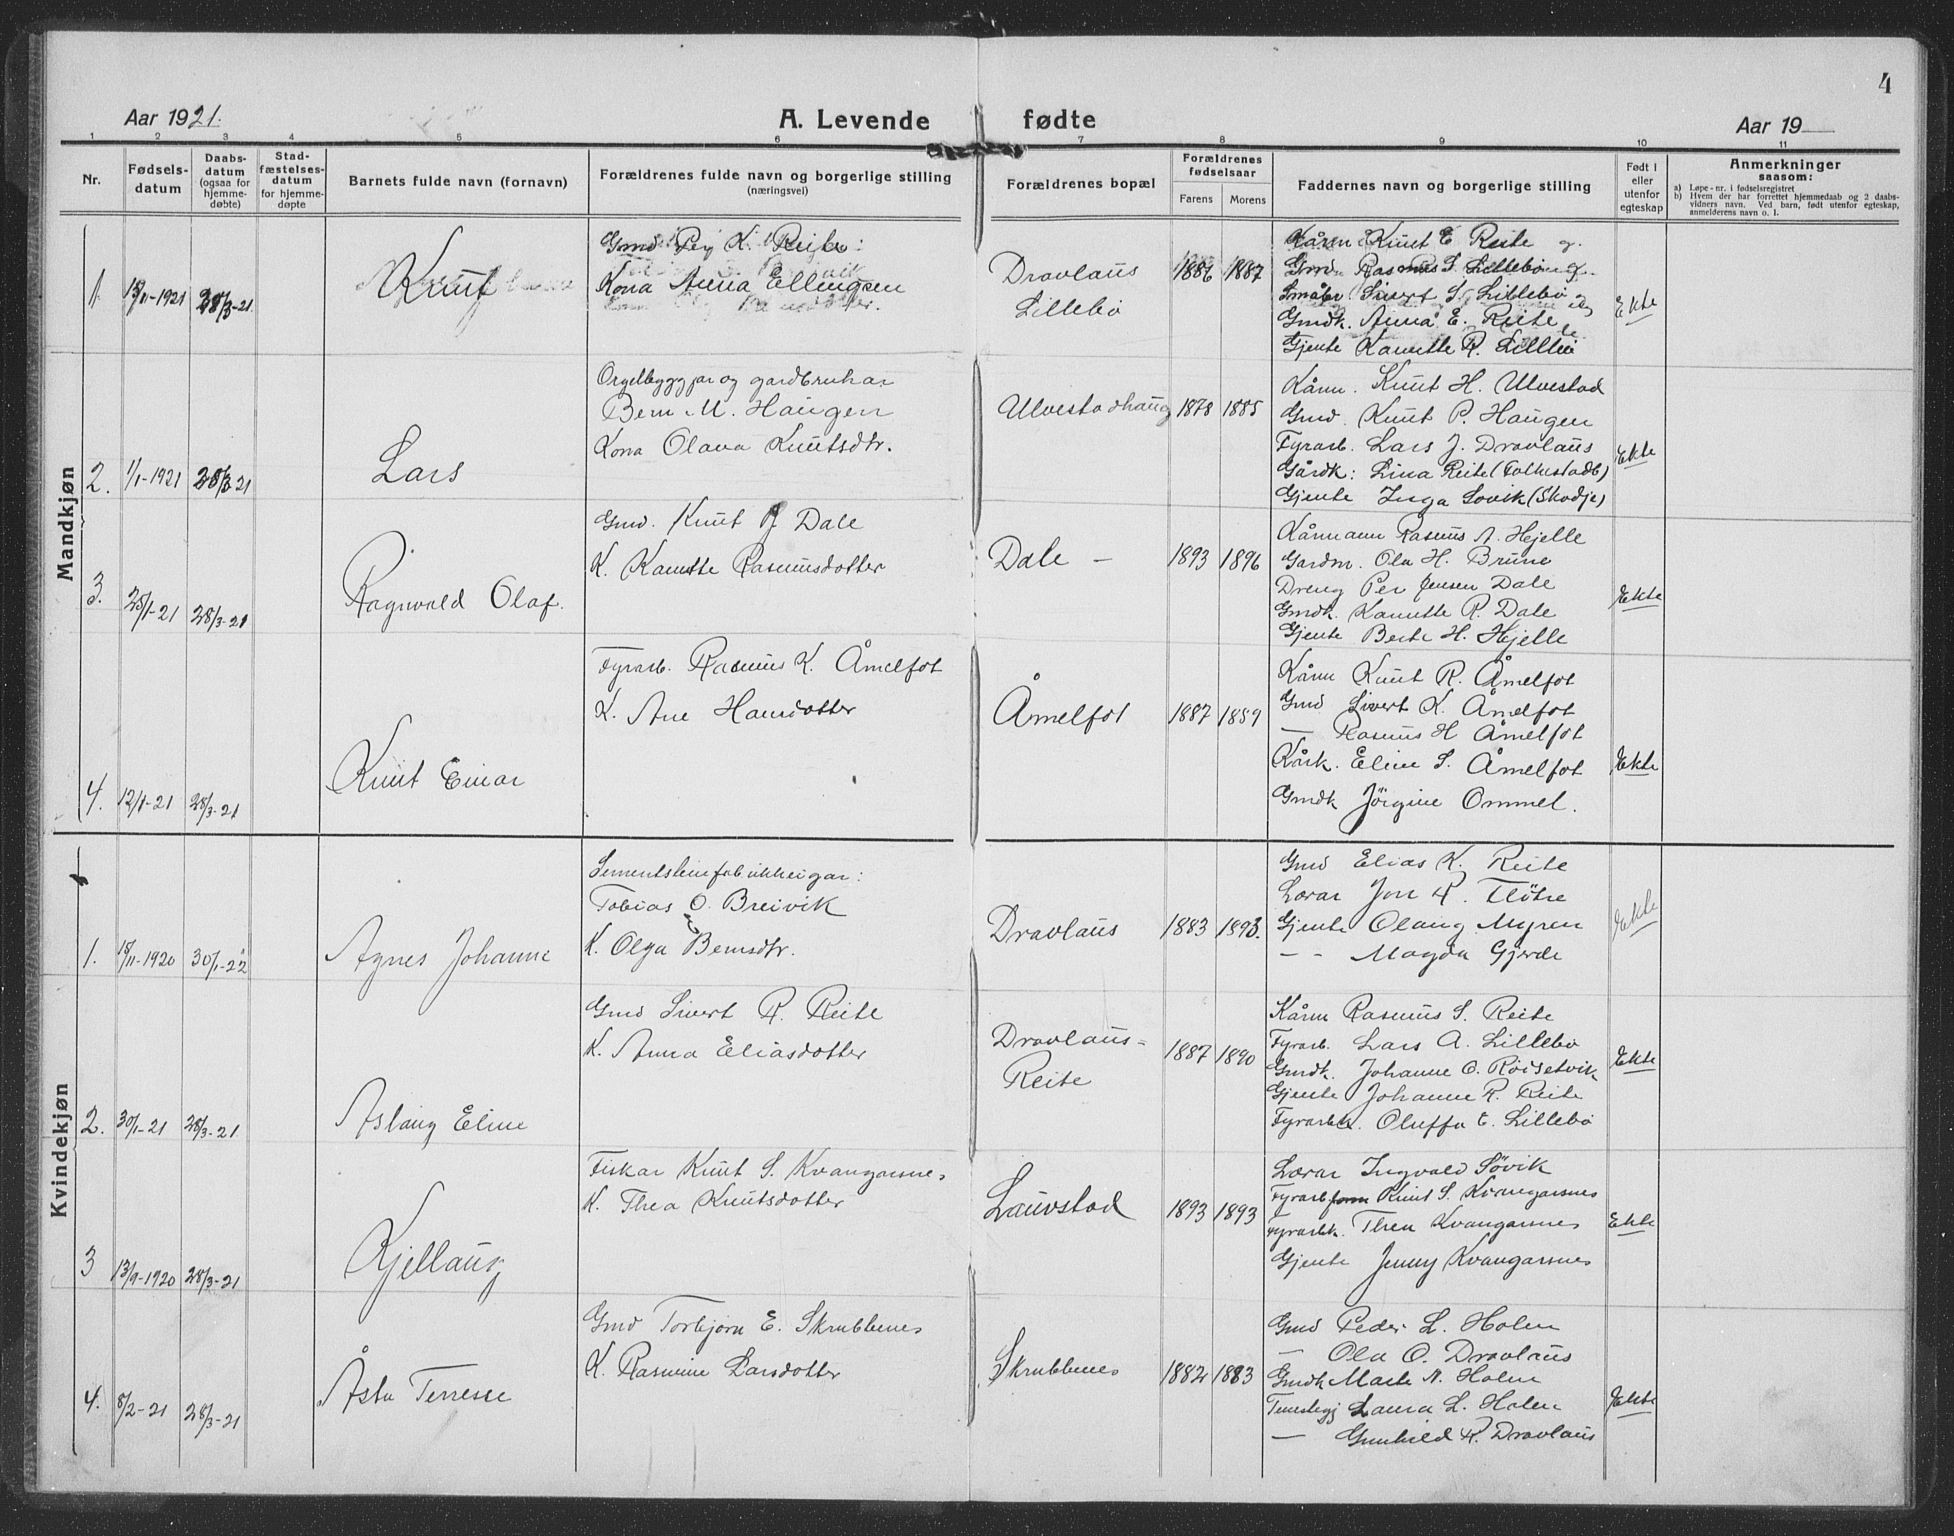 4
Aar 1921.
A. Levende fødte
Aar 19
1 2 3 4 5 6 7 8 9 10 11
Nr.
Fødsels-
datum
Daabs-
datum
(ogsaa for
hjemme-
døbte)
Stad-
fæstelses-
datum
for hjemme-
døpte
Barnets fulde navn (fornavn)
Forældrenes fulde navn og borgerlige stilling
(næringsvei)
Forældrenes bopæl
Forældrenes
fødselsaar
Farens Morens
Faddernes navn og borgerlige stilling
Født i
eller
utenfor
egteskap
Anmerkninger
saasom:
a) Løpe-nr. i fødselsregistret
b) Hvem der har forrettet hjemmedaab og 2 daabs-
vidners navn. Ved barn, født utenfor egteskap,
anmelderens navn o. l.
Mandkjøn
1. 18/11-1921 28/3-21.
Knut
Gmd Per K. Reite:
Kona Anna Ellingsen
Dravlaus
Lillebø
1886 1887
Kårm Knut E Reite og
Gmd Rasmus S. Lillebø og
Småbr. Sivert S. Lillebø og
Gmdk. Anna E. Reite
Gjente Kanutte R. Lillebø
Ekte
2. 1/1-1921 28/3 21
Lars
Orgelbyggjar og gardbrukar
Bern M. Haugen
Kona Olava Knutsdtr.
Ulvestadhaug
1878 1885
Kårm. Knut H. Ulvestad
Gmd. Knut P. Haugen
Fyrarb. Lars J. Dravlaus
Gårdk: Lina Reite (Folkestadb)
Gjente Inga Søvik (Skodje)
Ekte
3. 25/1-21 28/3-21
Ragnvald Olaf.
Gmd. Knut J Dale
K. Kanutte Rasmusdotter
Dale -
1893 1896
Kårmann Rasmus A. Hjelle
Gardm. Ola H. Brune
Dreng Per Jensen Dale
Gmdk. Kanutte R. Dale
Gjente Berte H. Hjelle
Ekte
4. 12/1-21 28/3-21
Knut Einar
Fyrarb. Rasmus K. Åmelfot
K. Ane Hansdotter
Åmelfot
1887 1889
Kårm Knut R. Åmelfot
Gmd Sivert K. Åmelfot
— Rasmus H Åmelfot
Kårk. Eline S. Åmelfot
Gmdk Jörgine Ommel.
Ekte
Kvindekjøn
1. 18/11-1920 30/1-22
Agnes Johanne
Sementsteinfabrikkeigar:
Tobias O. Breivik
K. Olga Bernsdtr.
Dravlaus
1883 1893.
Gmd Elias K. Reite
Lærar Jon R. Fløtre
Gjente Olaug Myren
- - Magda Gjerde
Ekte
2. 30/1-21 28/3-21
Aslaug Eline
Gmd Sivert R. Reite
K. Anna Eliasdotter
Dravlaus-
Reite
1887 1890
Kårm Rasmus S. Reite
Fyrarb. Lars A. Lillebø
Gmdk. Johanne O. Röidsetvik
Gjente Johanne R. Reite
Fyrarbk. Oluffa E. Lillebø
Ekte
3 13/9-1920 28/3-21
Kjellaug
Fiskar Knut S. Kvangarsnes
K. Thea Knutsdotter
Lauvstad
1893 1893
Lærar Ingvald Søvik
Fyrarb Knut S. Kvangarsnes
Fyrarbk. Thea Kvangarsnes
Gjente Jenny Kvangarsnes
Ekte
4. 8/2-21 28/3-21
Åsta Terese
Gmd Torbjørn E. Skrubbenes
K. Rasmine Larsdotter
Skrubbenes
1882 1883
Gmd Peder L. Holen
— Ola O. Dravlaus
Gmdk Marte N. Holen
Tenestegj Laura L. Holen
— Gunhild R. Dravlaus
Ekte